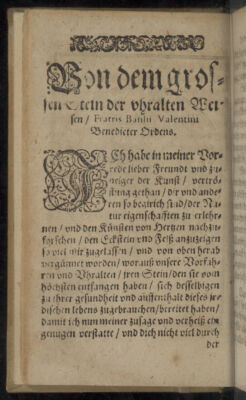 Von dem gros-
sen Stein der vhralten Wei-
sen / Fratris Basilii Valentini
Benedicter Ordens.
ICh habe in meiner Vor-
rede lieber Freundt vnd zu-
neiger der Kunst / vertrö-
stung gethan / dir vnd ande-
ren so begirich sind / der Na-
tur eigenschafften zu erleh-
nen / vnd den Künsten von Hertzen nachzu-
forschen / den Eckstein vnd Felß anzuzeigen
so viel mir zugelassen / vnd von oben herab
vergünnet worden / worauß vnsere Vorfah-
ren vnd Vhralten / jren Stein / den sie vom
höchsten entfangen haben / sich desselbigen
zu jhrer gesundheit vnd auffenthalt dieses jr-
dischen lebens zugebrauchen / bereitet haben /
damit ich nun meiner zusage vnd verheiß ein
genugen verstatte / vnd dich nicht viel durch
der